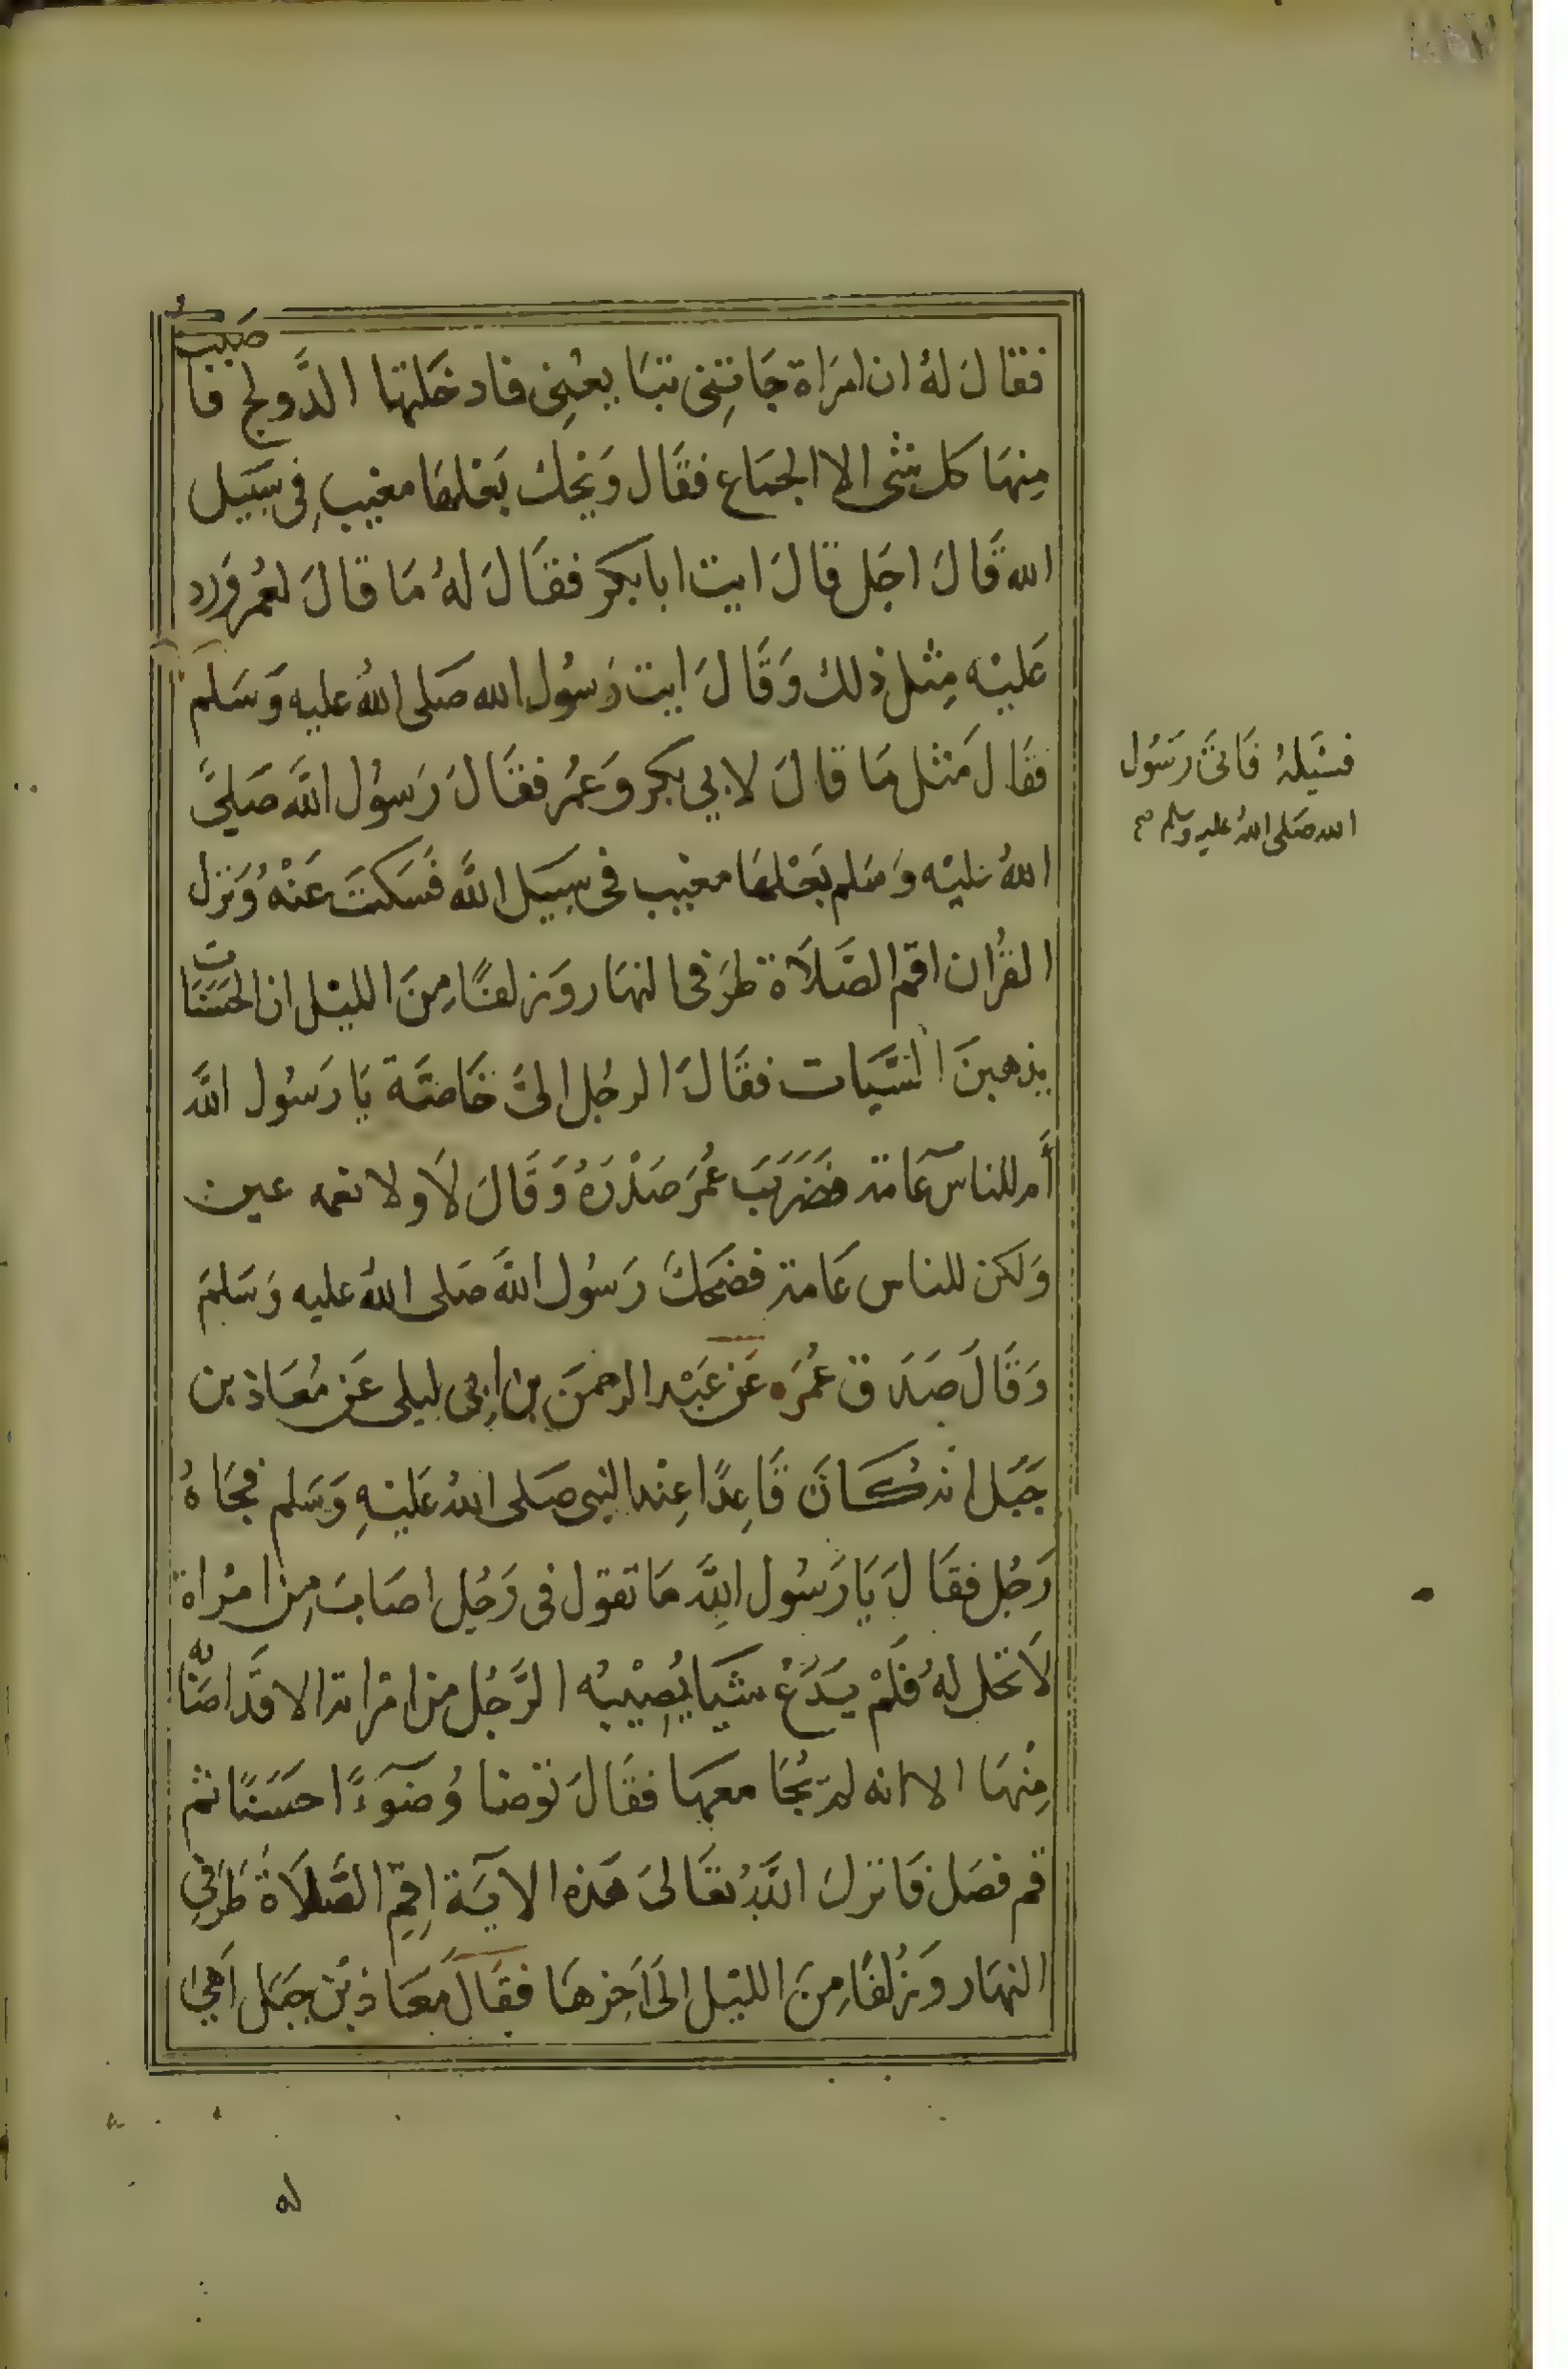 فقَالَ لهُ ان امرَاة جَاتِنى تبَايعُنِى فادخَلتها الدَّولج فاصَبتُ
مِنهَا كل شى الا الجمَاع فقَال وَيْحك بَعْلهَا مغيب فِى سَبَيل
الله قَالَ اجَل قالَ ايت ابا بكر فقَالَ لهُ مَا قالَ لعُمر وَرد
عَليْه مِثل ذلك وَقَالَ ايت رَسُول الله صَلى اللهُ عليه وَسَلم
فقَالَ مَثل مَا قالَ لابي بكر وَعمُر فقَالَ رَسوُل اللَّه صَلىَّ
اللهُ عليْه وَسَلم بَعْلهَا مغيب فى سبَيل اللَّه فَسَكتَ عَنْهُ وَنزل
القُران اقم الصَّلاَة طرَفى النهَار وَزلفًا مِنَ الليْل ان الحَسَنَات
يذهبنَ السَّيَات فقَالَ الرجُل الىَّ خَاصَّة يَا رَسُول اللَّه
أَم للناس عَامة فضَرَبَ عُمَر صَدْرَهُ وَقَالَ لَا ولا نعمه عين
وَلكن للناس عَامة فضَحَكَ رَسُول اللَّه صَلى اللهُ عليه وَسَلمَ
وَقَالَ صَدَق عُمَره عَن عَبْد الرحمنَ بن اِبى ليلى عَن مُعَاذ بن
جَبَل انهُ كَانَ قَاعِدًا عِنْد النبى صَلى اللهُ عَليْهِ وَسَلم فجَاهُ
رَجُل فقَالَ يَا رَسُول اللَّه مَا تقول فى رَجُل اصَابَ مِن امْراة
لاَ تحل لهُ فَلمْ يَدَعْ شَيَا يُصِيْبُه الرَّجُل من امْراته الا قدَ اصَابه
مِنْهَا الا انه لم يُجَامعهَا فقَالَ توَضا وُضوَءًا حَسَنًا ثم
قم فصَل فَانزلَ اللَّهُ تعَالىَ هَذه الايَة اِقِمِ الصَّلاَةَ طَرَفيِ
النهَار وَزُلفًا مِنَ الليْل الىَ اَخِرهَا فقَالَ مَعَاذ بْن جَبَل اَهِيَ
فسَيَلهُ فَاتىَ رَسُول
الله صَلى اللهُ عليه وسلم صح
له